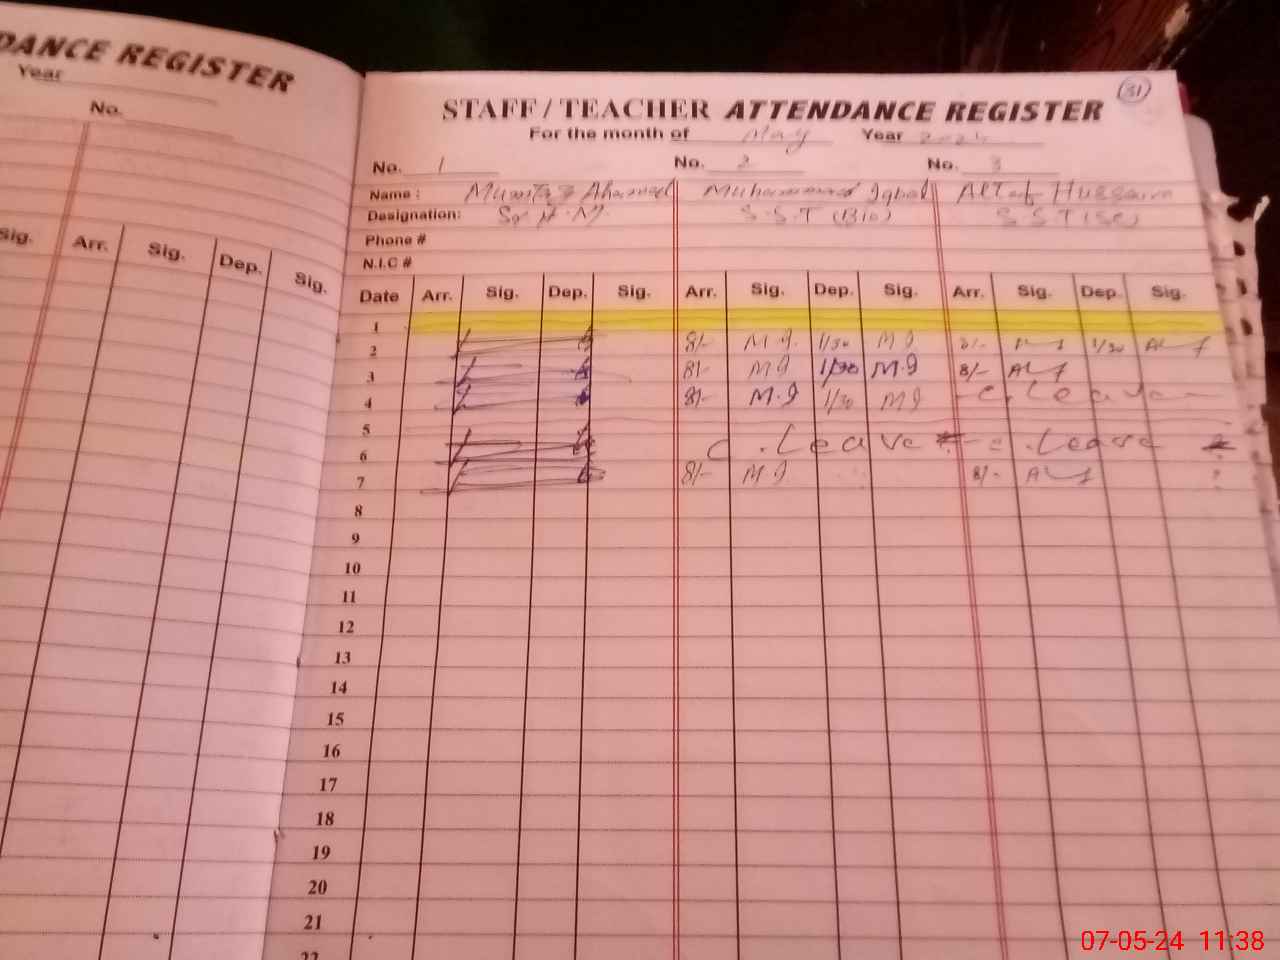 DANCE REGISTER
Year
No.
Sig. Arr. Sig. Dep. Sig.
31
STAFF / TEACHER ATTENDANCE REGISTER
For the month of May Year 2024
No. 1 No. 2 No. 3
Name : Mumtaz Ahamed Muhammad Iqbal Altaf Hussain
Designation: Sr H.M. S.S.T (Bio) S.S.T (Sc)
Phone #
N.I.C #
Date Arr. Sig. Dep. Sig. Arr. Sig. Dep. Sig. Arr. Sig. Dep. Sig.
1
2 8/- M.I. 1/30 M I 8/- 1/30
3 8/- M I 1/30 M.I 8/-
4 8/- M.I 1/30 M I C. Leave
5
6 C. Leave C. Leave
7 8/- M I 8/-
8
9
10
11
12
13
14
15
16
17
18
19
20
21
22
07-05-24 11:38